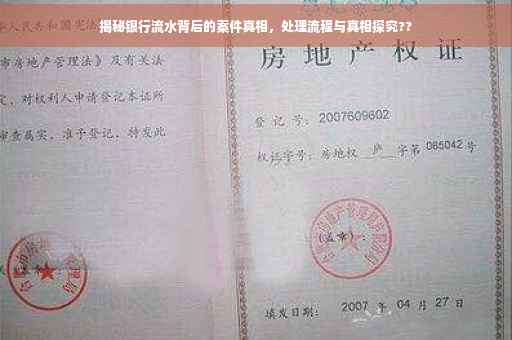 揭秘银行流水背后的案件真相，处理流程与真相探究??
人民共和国宪法
市房地产管理法》及有关法
定，对权利人申请登记本证所
审查属实，准予登记，特发此
房地产权证
登记号：2007609602
权证字号：房地权 庐 字第 085042 号
(盖章)：
填发日期： 2007 年 04 月 27 日